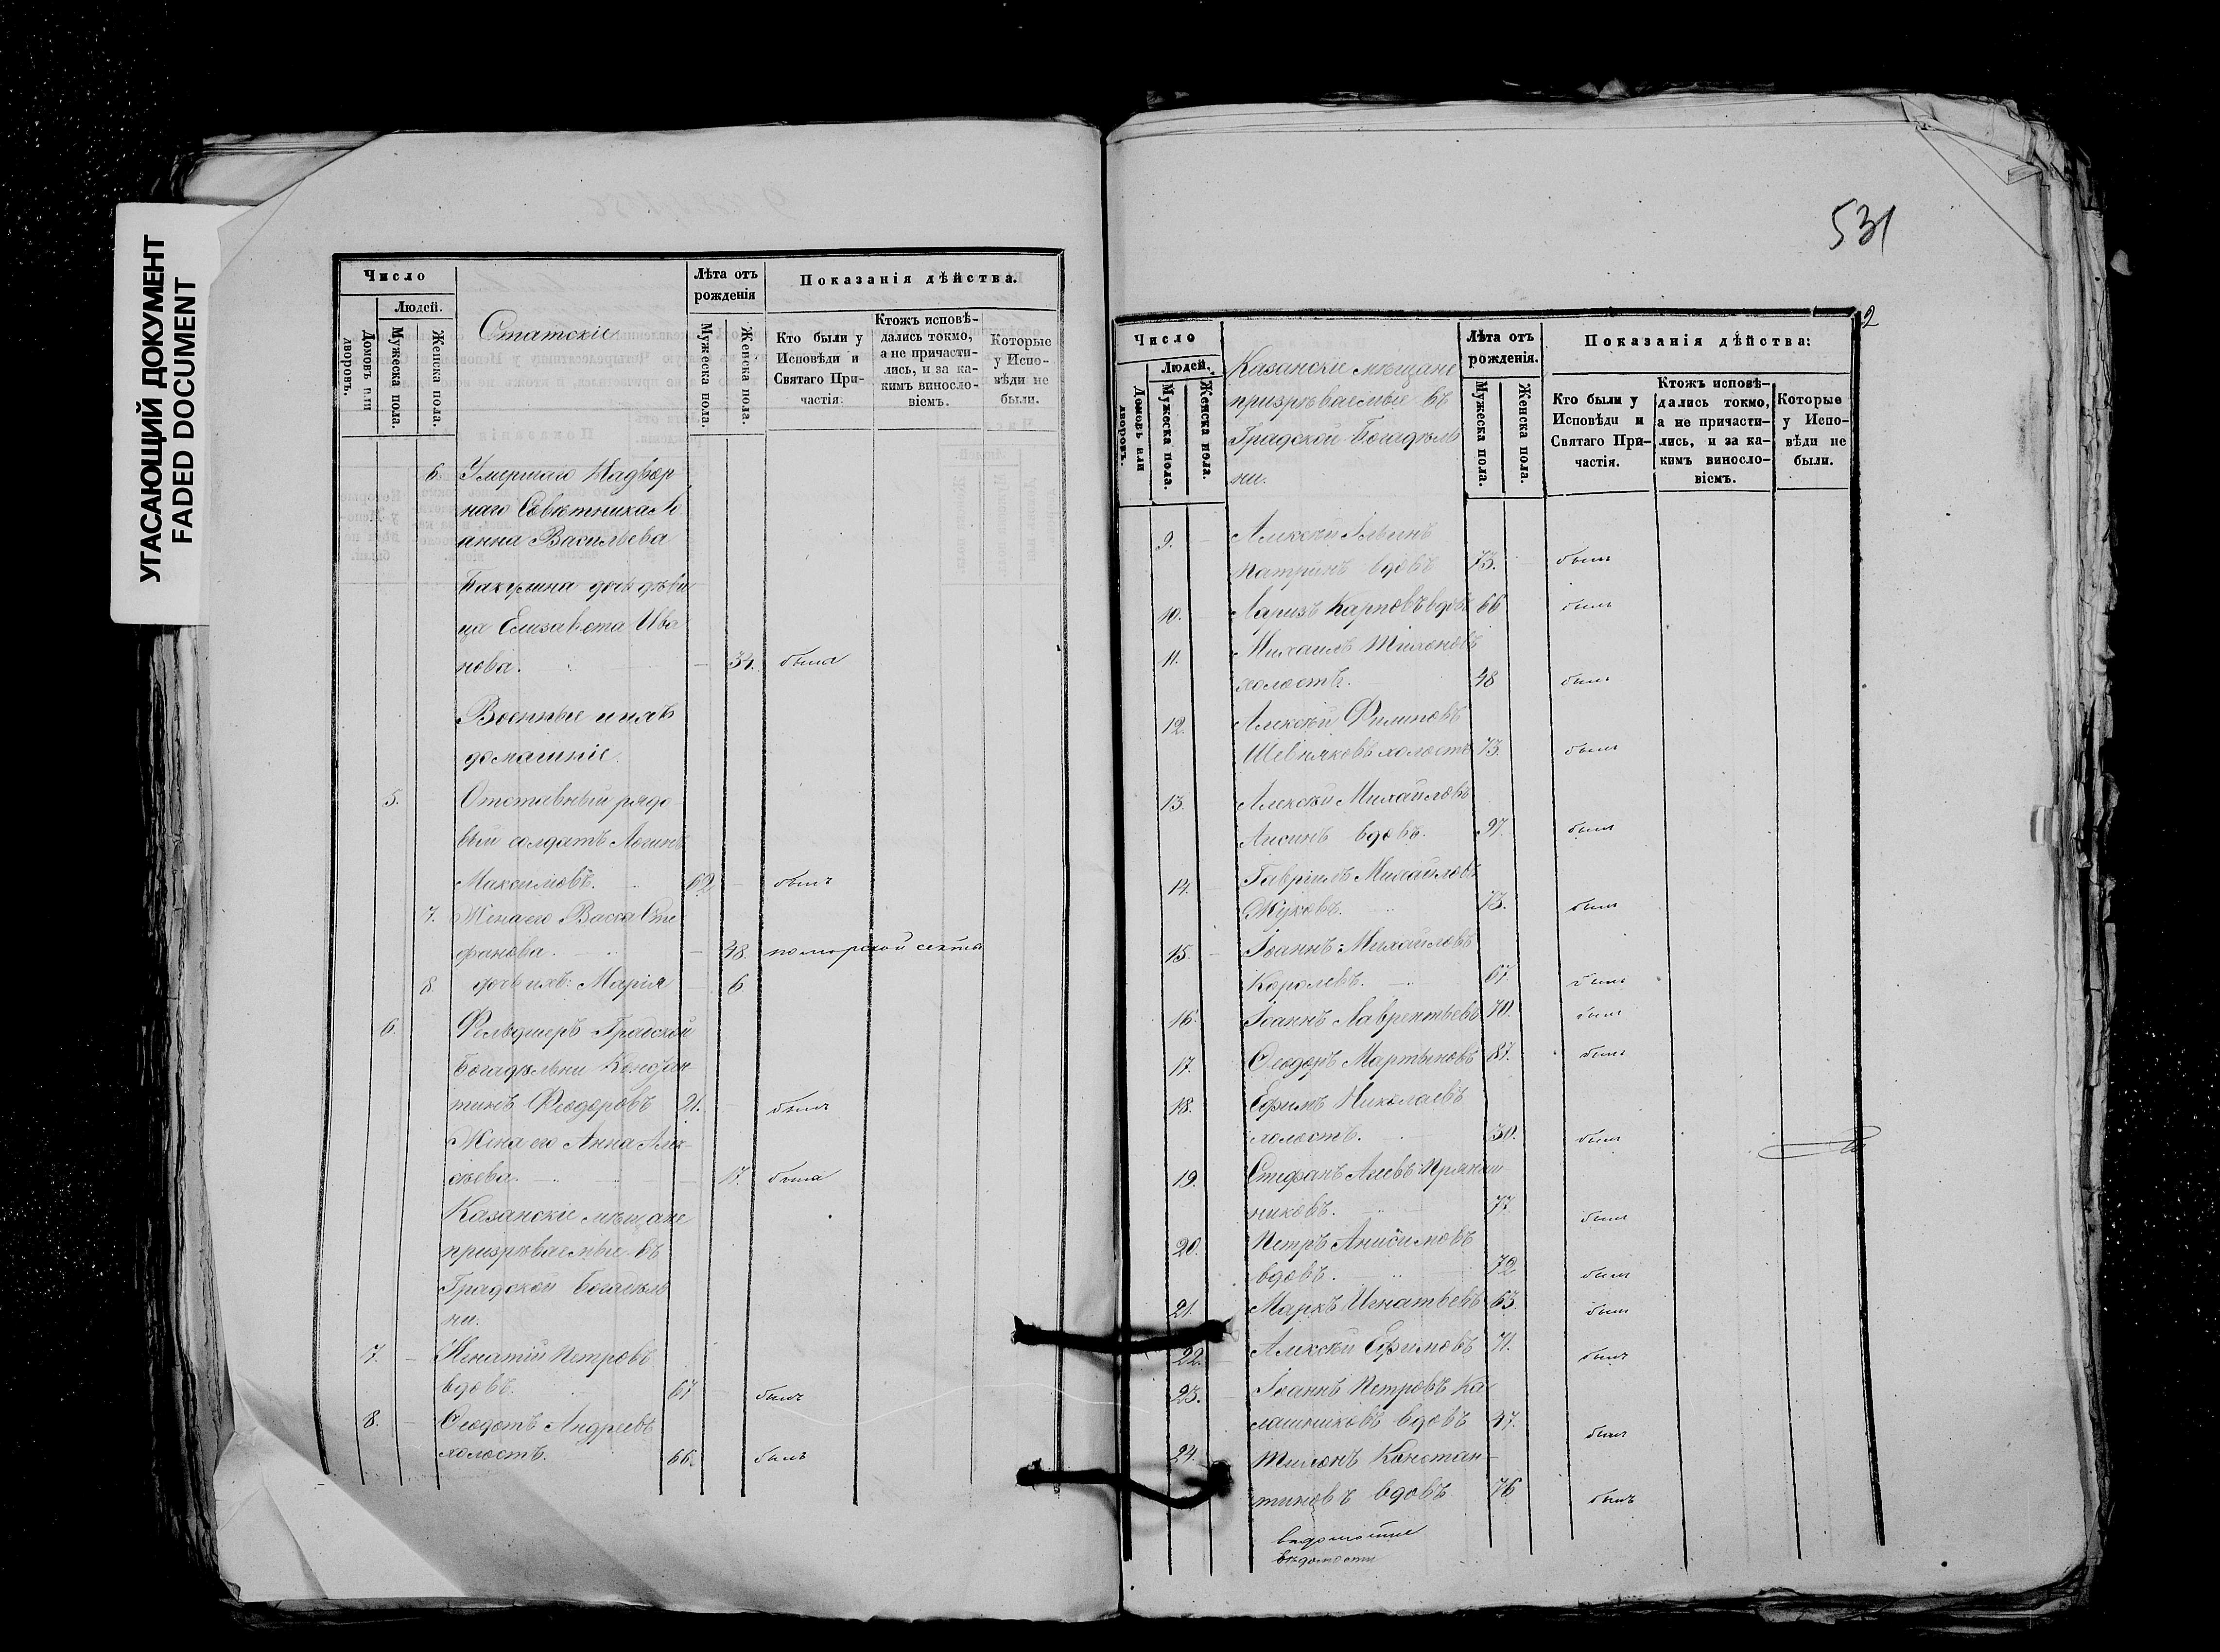 УГАСАЮЩИЙ ДОКУМЕНТ
FADED DOCUMENT
Число
Людей.
Домовъ или дворовъ.
Мужеска пола.
Женска пола.
Статскіе
Лѣта отъ рожденія
Мужеска пола.
Женска пола.
Показанія дѣйства.
Кто были у Исповѣди и Святаго Причастія.
Ктожъ исповѣдались токмо, а не причастились, и за какимъ винословіемъ.
Которые у Исповѣди не были.
6. Умершаго Надвор
наго Совѣтника
Васильева
дочь дѣви
ца Елизавета Ива
нова. 34. была
Военные и ихъ
домашніе.
5. Отставный рядо
вый солдатъ Логинъ
Максимовъ. 62 былъ
7. Жена его Васса Сте
фанова. 48. поморской секты
8. дочь ихъ: Марія 6.
6. Фельдшеръ Градской
Богадѣльни Констан
тинъ Феодоровъ 21. былъ
Жена его Анна Алек
сѣева. 17. была
Казанскіе мѣщане
призрѣваемые въ
Градской Богадѣль
ни.
7. Игнатій Петровъ
вдовъ. 67 былъ
8. Ѳеодотъ Андреевъ
холостъ. 66. былъ
531
2
Число
Людей.
Домовъ или дворовъ.
Мужеска пола.
Женска пола.
Казанскіе мѣщане
призрѣваемые въ
Градской Богадѣль
ни.
Лѣта отъ рожденія.
Мужеска пола.
Женска пола.
Показанія дѣйства:
Кто были у Исповѣди и Святаго Причастія.
Ктожъ исповѣдались токмо, а не причастились, и за какимъ винословіемъ.
Которые у Исповѣди не были.
9. Алексѣй
вдовъ 73. былъ
10. Карповъ вдовъ 66 былъ
11. Михаилъ Тихоновъ
холостъ. 48 былъ
12. Алексѣй Филиповъ
Шевняковъ холостъ 73. былъ
13. Алексѣй Михайловъ
Лисинъ вдовъ. 97. былъ
14. Гавріилъ Михайловъ
Жуковъ. 73. былъ
15. Іоаннъ Михайловъ
Королевъ. 67. былъ
16. Іоаннъ Лаврентьевъ 70. былъ
17. Ѳеодоръ Мартыновъ 87. былъ
18. Ефимъ Николаевъ
холостъ. 30. былъ
19. Стефанъ Агеевъ Прянич
никовъ. 77. былъ
20. Петръ Анисимовъ
вдовъ. 72 былъ
21. Маркъ Игнатьевъ 63. былъ
22. Алексѣй Ефимовъ 71. былъ
23. Іоаннъ Петровъ Ка
лашниковъ вдовъ 47. былъ
24. Тихонъ Констан
тиновъ вдовъ 76 былъ
вѣдомости